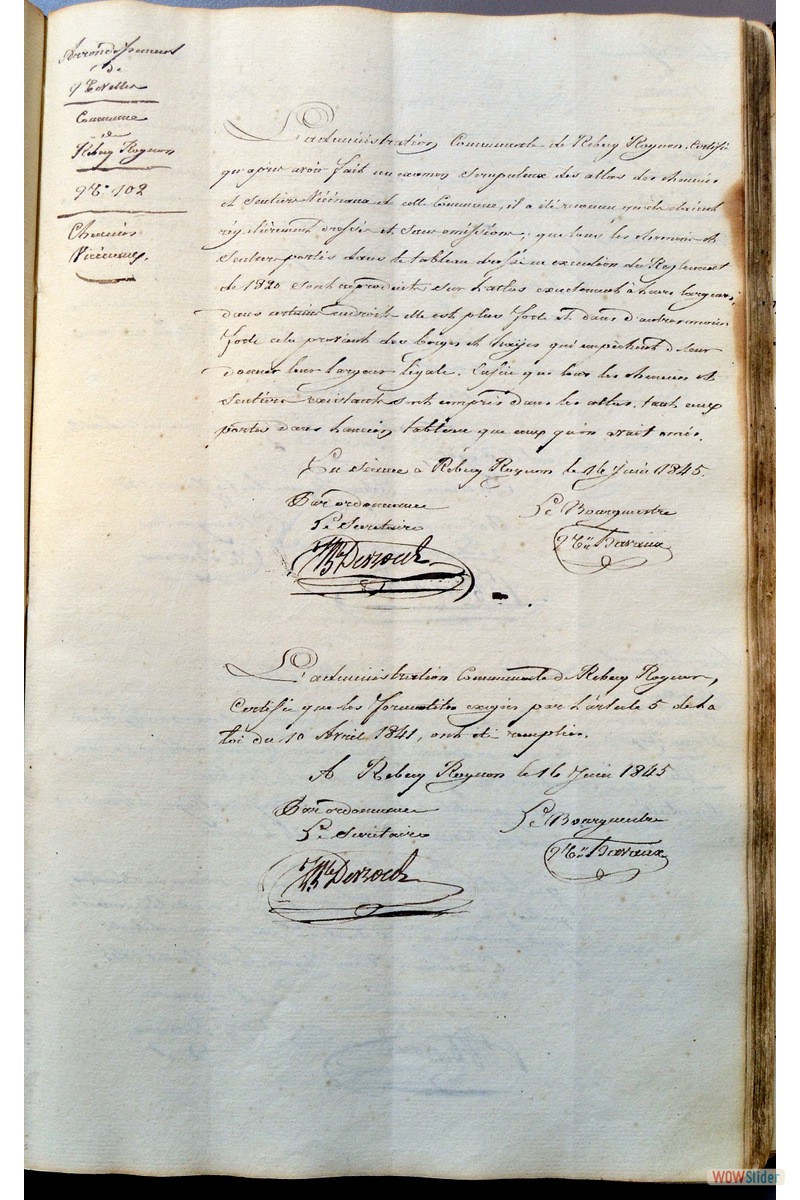 Arrondissement
de
Nivelles
Commune
de
Rebecq Rognon
N° 102
Chemins
Vicinaux.
L'administration Communale de Rebecq Rognon, Certifie
qu'après avoir fait un examen scrupuleux des atlas des chemins
et Sentiers Vicinaux de cette Commune, il a été reconnu qu'ils étaient
régulièrement dressés et sans omission; que tous les chemins et
Sentiers portés dans le tableau dressé en exécution du Règlement
de 1820 sont reproduits sur l'atlas exactement à leurs largeurs,
dans certains endroits elle est plus forte et dans d'autres moins
forte cela provient des berges et hayes qui empêchent de leur
donner leur largeur légale. Enfin que tous les chemins et
Sentiers existants sont compris dans les atlas, tant ceux
portés dans l'ancien tableau que ceux qu'on avait omis.
En séance à Rebecq Rognon le 16 Juin 1845.
Par ordonnance
Le Secrétaire
Le Bourgmestre
L'administration Communale de Rebecq Rognon,
Certifie que les formalités exigées par l'article 5 de la
loi du 10 Avril 1841, ont été remplies.
A Rebecq Rognon le 16 Juin 1845
Par ordonnance
Le Secrétaire
Le Bourgmestre
WOWSlider